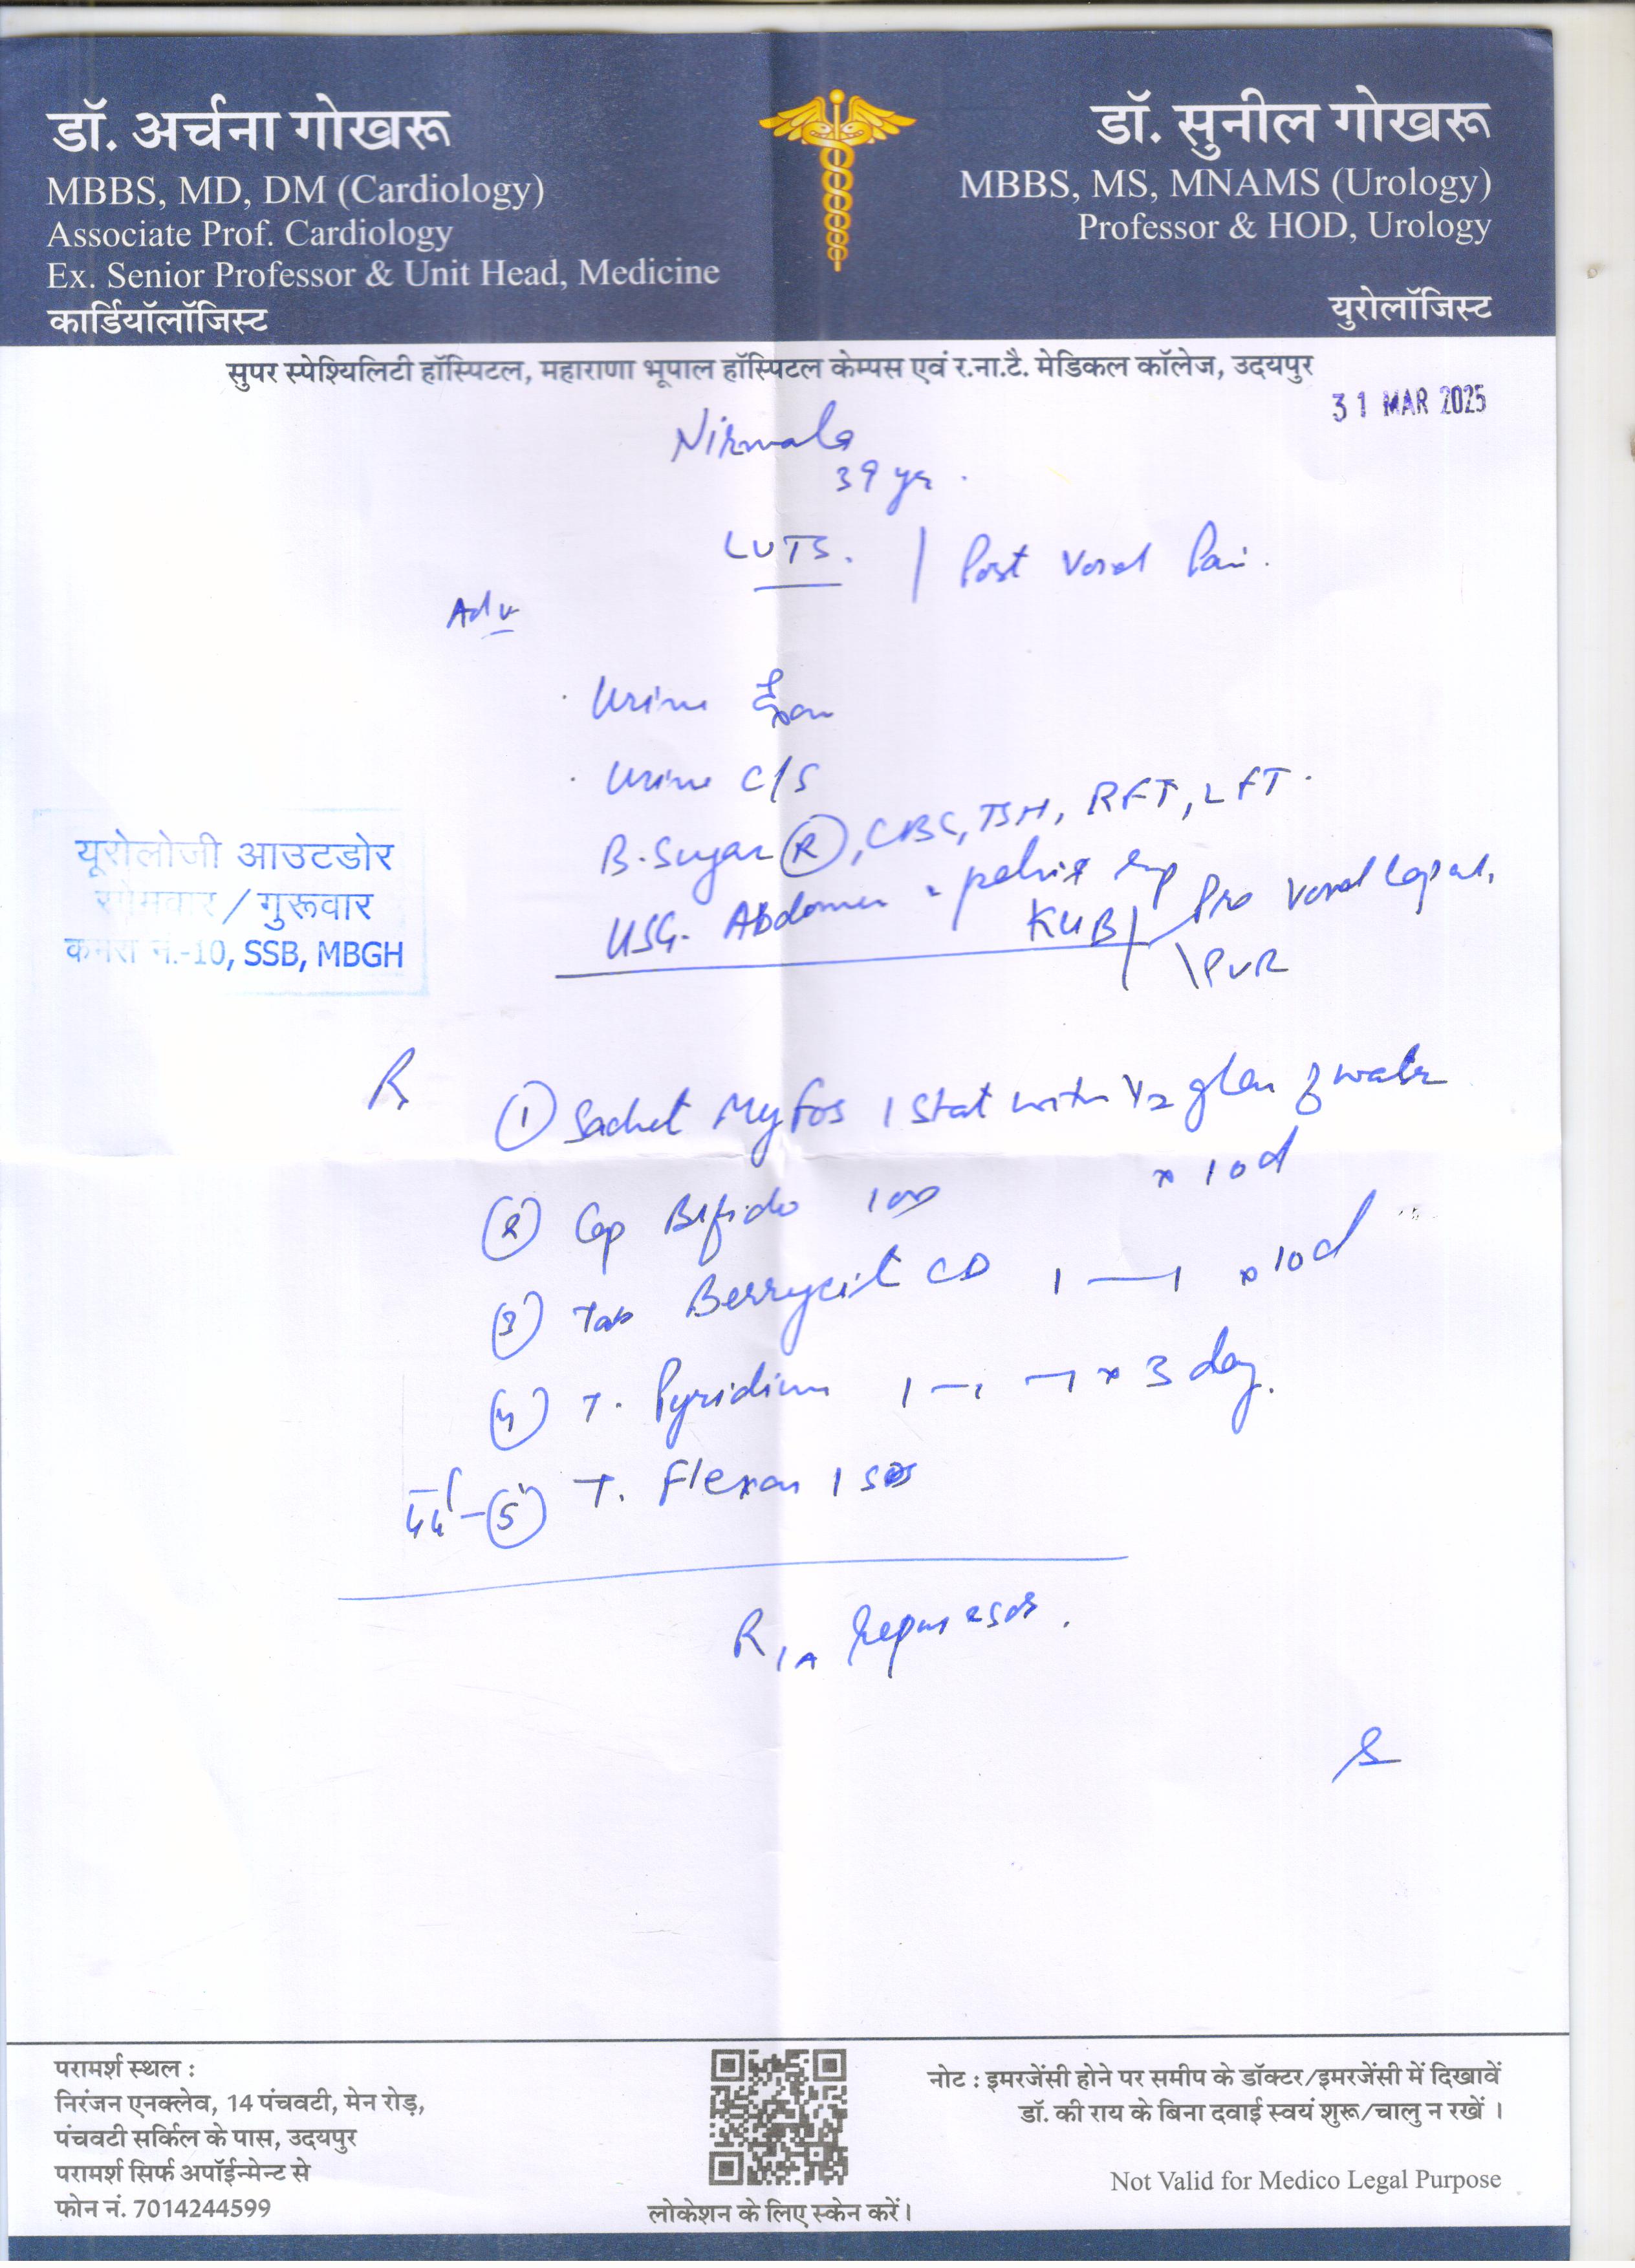 डॉ. अर्चना गोखरू
MBBS, MD, DM (Cardiology)
Associate Prof. Cardiology
Ex. Senior Professor & Unit Head, Medicine
कार्डियॉलॉजिस्ट
डॉ. सुनील गोखरू
MBBS, MS, MNAMS (Urology)
Professor & HOD, Urology
युरोलॉजिस्ट
सुपर स्पेश्यिलिटी हॉस्पिटल, महाराणा भूपाल हॉस्पिटल केम्पस एवं र.ना.टै. मेडिकल कॉलेज, उदयपुर
31 MAR 2025
Nirmala
39 yr.
LUTS. / Post Void Pain.
Adv
Urine Exam
Urine C/S
B. Sugar (R), CBC, TSH, RFT, LFT.
USG. Abdomen pelvis
KUB / Pre Void
PVR
यूरोलोजी आउटडोर
सोमवार / गुरूवार
कमरा नं.-10, SSB, MBGH
R
(1) Sachet Myfos 1 Stat with 1/2 glass of water
(2) Cap Bifido 1 x 10d
(3) Tab Berrycit CD 1 — 1 x 10d
(4) T. Pyridium 1 — 1 — 1 x 3 day.
(5) T. Flexon 1 SOS
R
परामर्श स्थल :
निरंजन एनक्लेव, 14 पंचवटी, मेन रोड़,
पंचवटी सर्किल के पास, उदयपुर
परामर्श सिर्फ अपॉईन्मेन्ट से
फोन नं. 7014244599
लोकेशन के लिए स्केन करें।
नोट : इमरजेंसी होने पर समीप के डॉक्टर/इमरजेंसी में दिखावें
डॉ. की राय के बिना दवाई स्वयं शुरू/चालु न रखें ।
Not Valid for Medico Legal Purpose